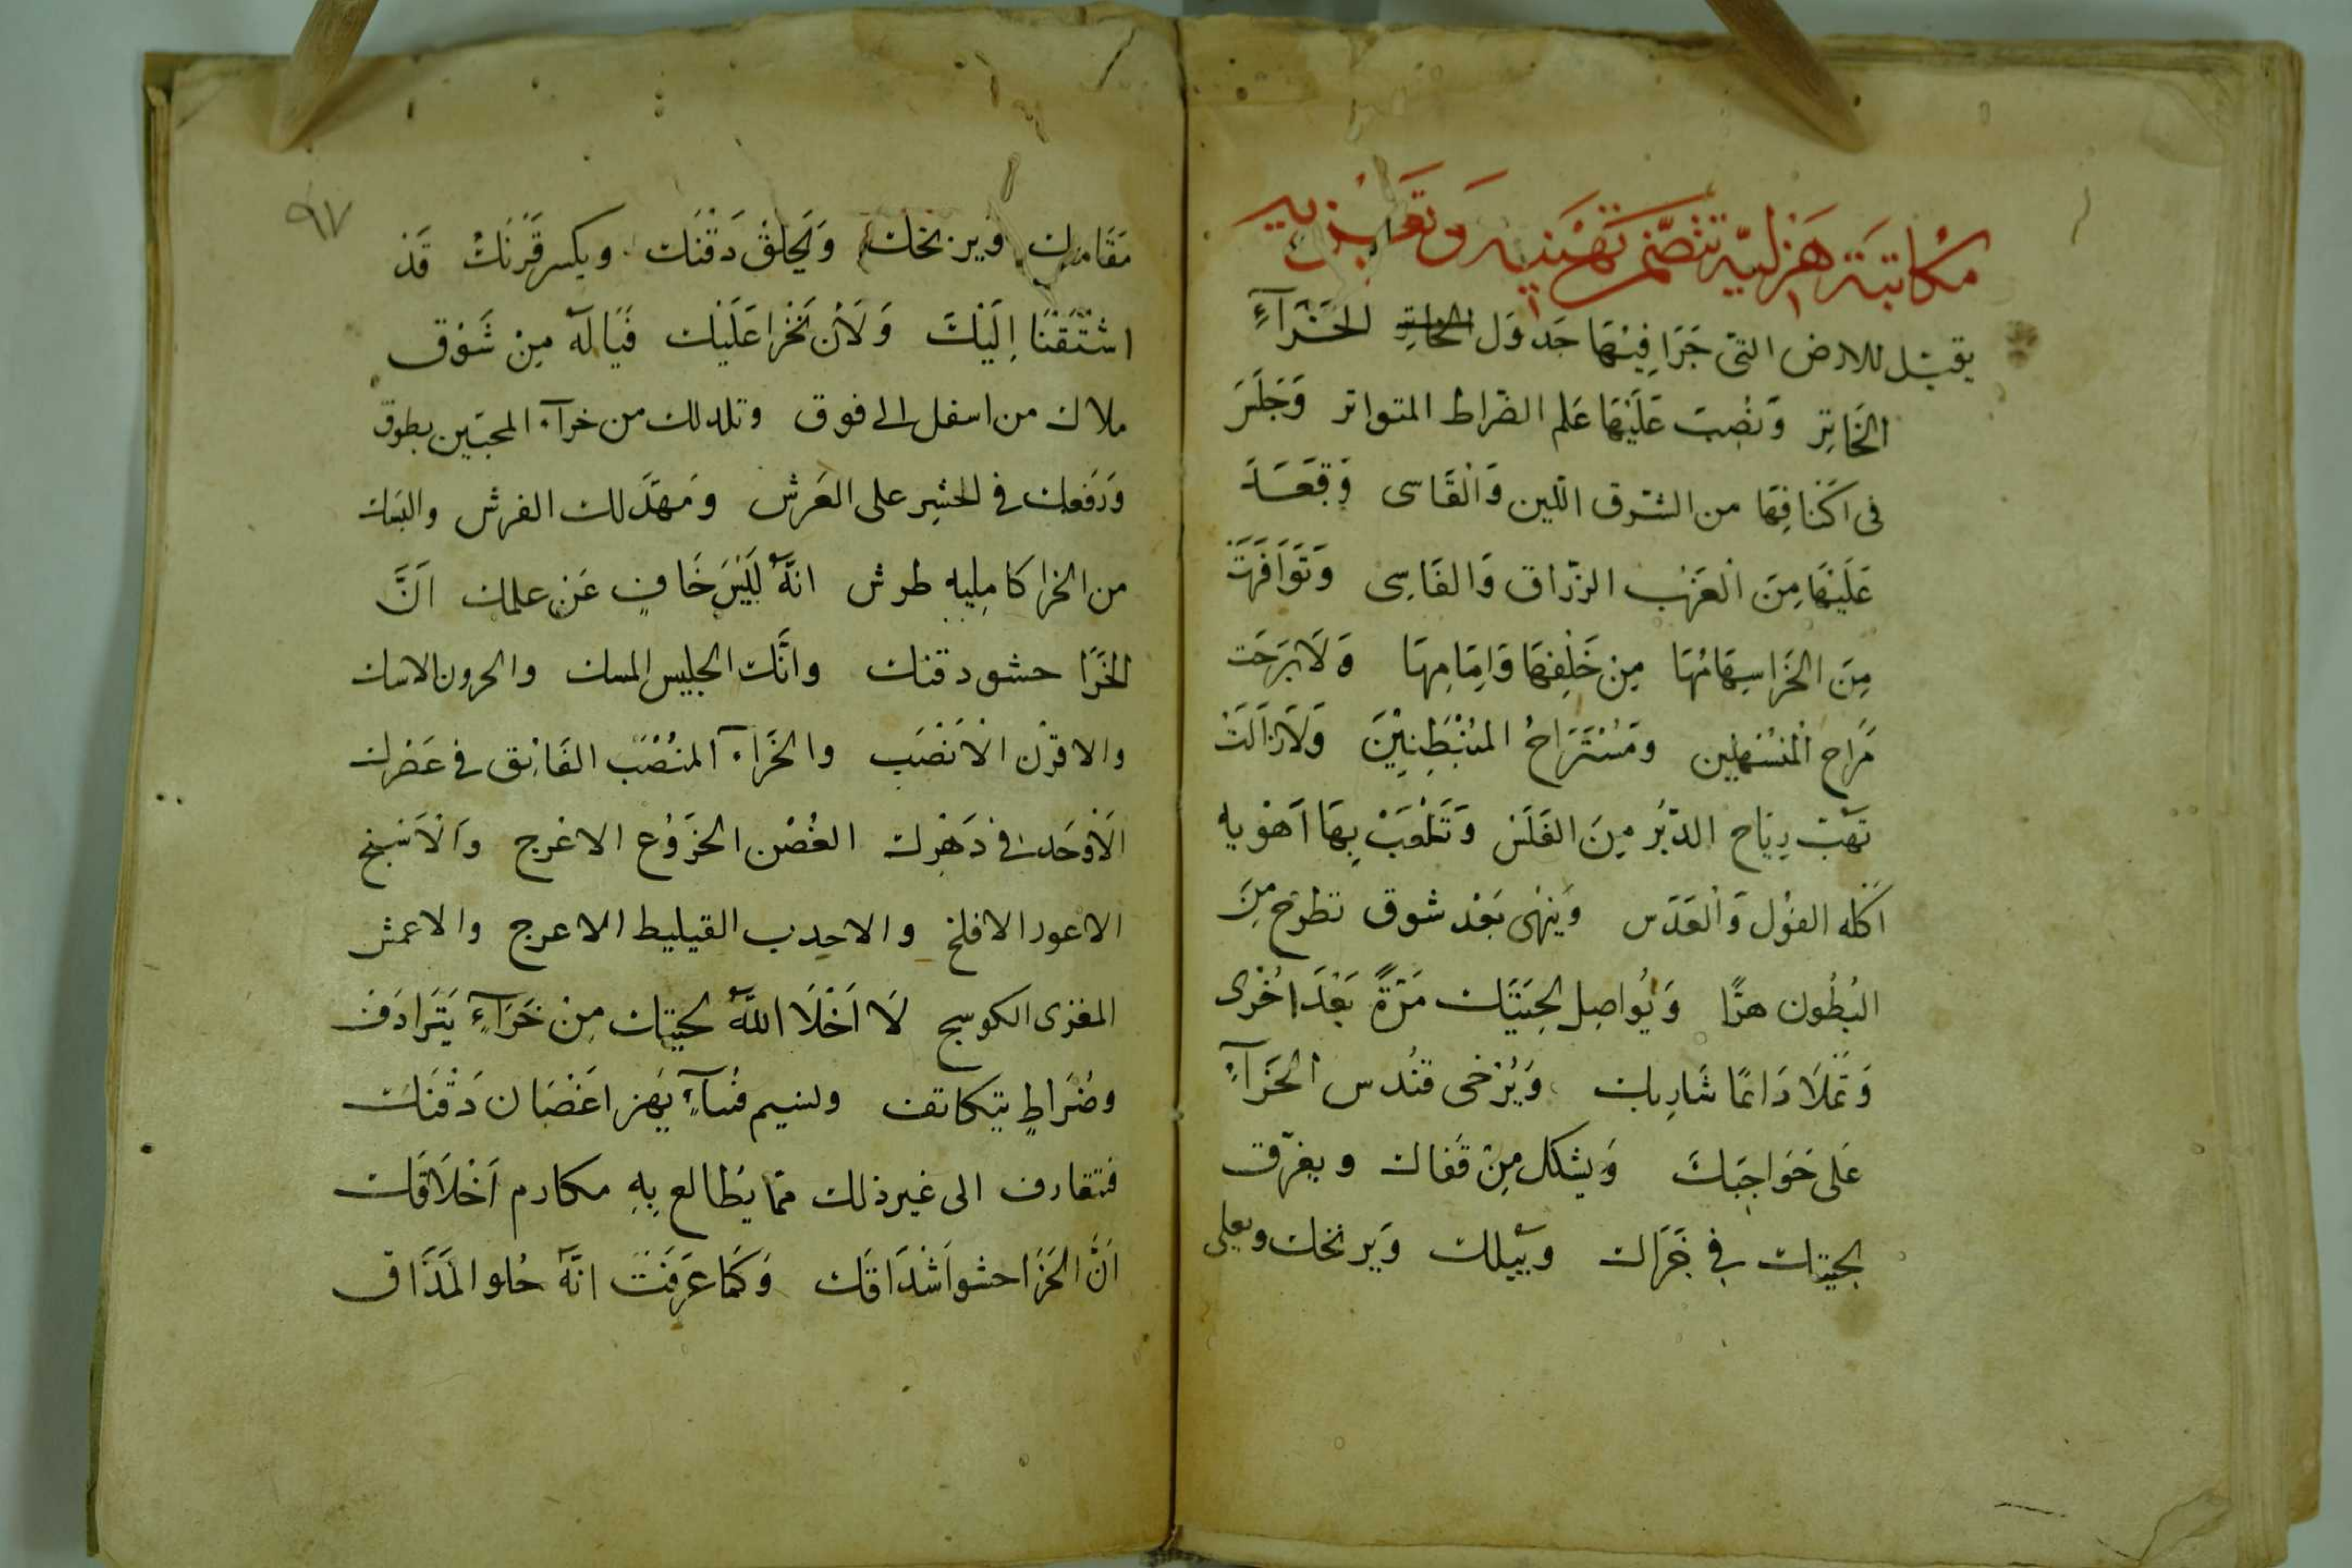 مكاتبة هزلية تتضمن تهنية وتعزية
يقبل للارض التى جَرَا فِيْهَا جَدوَل الخَاتِرِ الخَرَآءِ
الخَاتِر وَنُصِبَ عَلَيْهَا عَلم الضراط المتواتر وَجَلَسَ
فى اكْنَافِهَا من الشرق اللين وَالْقَاسى وَقَعَدَ
عَلَيْهَا مِنَ الْغَرْب الزرّاق وَالفَاسِى وَتَوَافَرَتْ
مِنَ الخَرَا سِهَامُهَا مِنْ خَلْفِهَا وَامَامِهَا وَلَا بَرَحَت
مَرَاح الْمُنْسَهِلِين ومُسْتَرَاحُ المُنْبَطِنِيْنَ وَلَا زَالَتْ
تَهُبّ رِيَاح الدّبُر مِنَ الغَلَس وَتَلْعَبْ بِهَا اَهْوِيه
اكله الفوْل وَالْعَدَس وَيُنْهى بَعْد شوق تطرحَ مِنَ
البُطُون هرًّا وَيُوَاصِل لِحِيَتَك مَرّةً بَعْدَ اُخْرى
وَتملَا دَائمًا شَارِبك وَيُرْخى قنْدُس الخَرَآءِ
عَلى حَوَاجِبَكَ وَيشكل مِنْ قَفاك ويغرّق
لحيتك فِي خَرَاك وَيبّلك وَيرنخك ويعلى
٩٧
مَقَامك وَيرنخك وَيَحْلقْ دَقْنَك ويكسر قَرْنَكْ قَدْ
اشْتَقْنَا اِلَيْكَ وَلَأن نَخْرَا عَلَيْك فَيَا لَهُ مِنْ شَوْق
ملاك من اسفل الى فوق وتلدلك من خرآء المحبّين بطوق
وَرَفَعك فى الحَشِر على العَرش وَمَهّدَ لك الفرش والبسَك
من الخرا كامليه طرش انهُ لَيْسَ خَافٍ عَنْ علمك اَنَّ
الخَرَا حشو دقنك وانَّك الجليس المسك والحرون الاسك
والاقرْن الْانْصَب والخَرَآء المنْصَبّ الفَائق فى عَصْرك
الَاوْحَد فى دَهْرك الغُصْن الخَرْوع الاعْرج وَالْاَسْبخ
الاعور الافلخ والاحدب القيليط الاعرج والاعمش
المغزى الكوسج لَا اَخْلَا اللهُ لحيتك مِنْ خَرَآءٍ يَتَرَادَف
وضُرَاطٍ يتكاتف ونسيم فُسَآءٍ يَهز اغصَان دَقْنَك
فتقارف الى غير ذلك ممّا يُطَالع بِهِ مكارم اَخْلَاقَك
اَنَّ الخَرَا حشو اَشْدَاقَك وَكَما عَرَفْتَ انّهُ حُلو المَذَاق